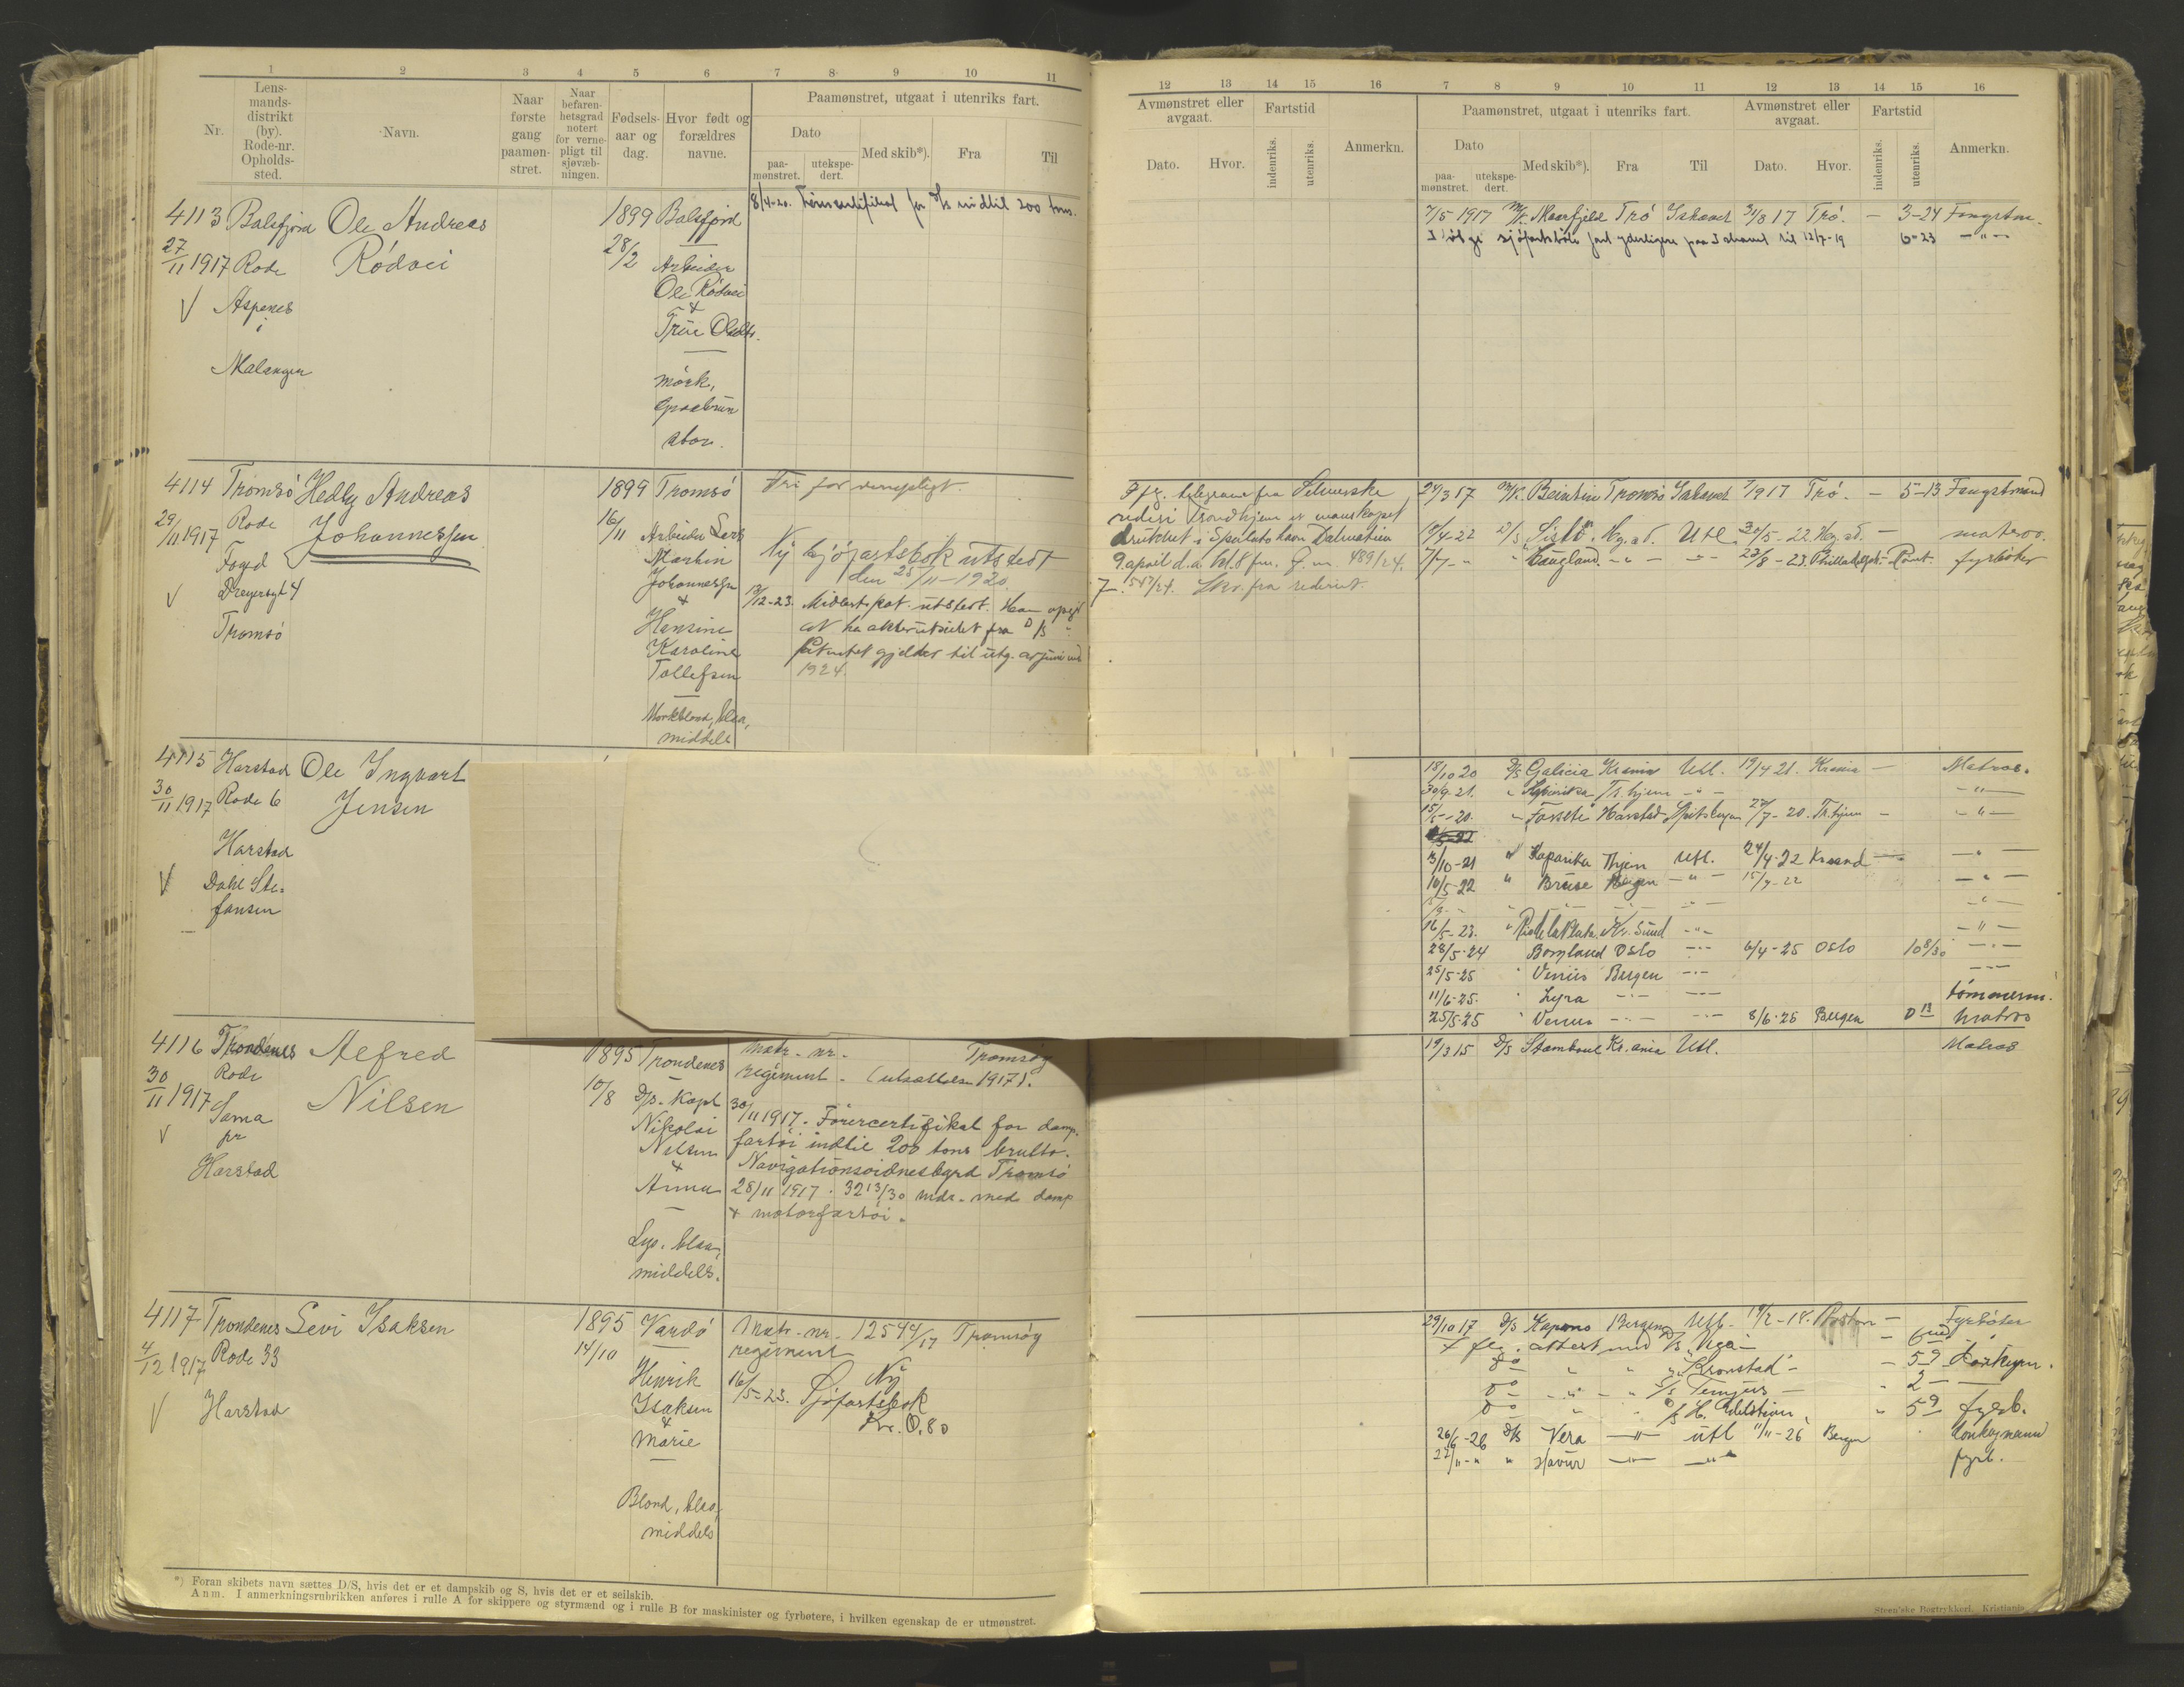 1 2 3 4 5 6 7 8 9 10 11
Nr.
Lens-
mands-
distrikt
(by).
Rode-nr.
Opholds-
sted.
Navn.
Naar
første
gang
paamøn-
stret.
Naar
befaren-
hetsgrad
notert
for verne-
pligt til
sjøvæb-
ningen.
Fødsels-
aar og
dag.
Hvor født og
forældres
navne.
Paamønstret, utgaat i utenriks fart.
Dato
paa-
mønstret.
utekspe-
dert.
Med skib*).
Fra
Til
4113 Balsfjord Ole Andreas 1899 Balsfjord
27/11 1917 Rode Rödvei 28/2 Arbeider
Aspenes Ole Rödvei
i &
Malangen Trine Olsdtr.
mörk,
graabrun
stor.
8/4-20. for D/S indtil 200 tons.
4114 Tromsö Hedly Andreas 1899 Tromsö Fri for vernepligt.
29/11 1917 Rode Johannessen 16/11 Arbeider Lars
Fogd Martin
Dreyersgt 4 Johannessen
Tromsö &
Hansine
Karoline
Tollefsen
Mörkblond, blaa,
middels
Ny sjøfartsbok utstedt
den 25/11-1920.
13/12-23. Midlert. pat. utstedt. Han opgir
at ha akterutseilet fra D/S
Patentet gjelder til utg. av juni md
1924.
4115 Harstad Ole Ingvart
30/11 1917 Rode 6 Jensen
Harstad
Dahl Ste-
fansen
4116 Trondenes Alfred 1895 Trondenes Matr.-nr. - Tromsøy
30/11 1917 Rode Nilsen 10/8 D/s. Kapt regiment - (utsættelse 1917).
Sama Nikolai
pr Nilsen
Harstad &
Anna
Lys, blaa,
middels.
30/11 1917. Förercertifikat for damp-
fartöi indtil 200 tons brutto.
Navigationsvidnesbyrd Tromsö
28/11 1917. 32 13/30 mdr. med damp
& motorfartöi.
4117 Trondenes Sevi Isaksen 1895 Vardö Matr.-nr. 1254 4/17 Tromsöy
4/12 1917 Rode 33 14/10 Henrik regiment
Harstad Isaksen
&
Marie
Blond, blaa,
middels
16/5-23. Ny
Sjöfartsbok
Kr. 0.80
*) Foran skibets navn sættes D/S, hvis det er et dampskib og S, hvis det er et seilskib.
Anm. I anmerkningsrubrikken anføres i rulle A for skippere og styrmænd og i rulle B for maskinister og fyrbøtere, i hvilken egenskap de er utmønstret.
12 13 14 15 16 7 8 9 10 11 12 13 14 15 16
Avmønstret eller
avgaat.
Dato. Hvor.
Fartstid
indenriks. utenriks.
Anmerkn.
Paamønstret, utgaat i utenriks fart.
Dato
paa-
mønstret.
utekspe-
dert.
Med skib*). Fra Til
Avmønstret eller
avgaat.
Dato. Hvor.
Fartstid
indenriks. utenriks.
Anmerkn.
7/5 1917 M/K. Maerfjeld Trö Ishavet 31/8 17 Trö. - 3-24 Fangstm.
sjöfartsbok fart yderligere paa Ishavet til 12/7-19 6-23 - " -
Ifg. telegram fra
rederi Trondhjem er mandskapet
druknet i Spalato havn Dalmatien
9 april d.a. kl. 8 fm. J. nr. 489/24.
J. 547/24. Skr. fra rederiet.
24/3 17 M/K. Tromsö Ishavet 1917 Trö. - 5-13 Fangstmand
18/4-22 D/S Hg.sd. Utl. 30/5-22 Hg.sd. - matros.
7/7-" " Haugland - " - - " - 22/8-23. fyrböter
18/10 20 D/S Galicia Krania Utl. 19/4 21. Krania - Matros.
30/9-21. " Kaparika Tr.hjem - " - - " -
15/5-20. " Forsete Harstad Spitsbergen 27/7-20. Tr.hjem - - " -
3/10-21 " Kaparika Thjem Utl. 24/4-22 Krsand - - " -
10/5-22 " Bruse Bergen - " - 15/7-22 - " -
16/5-23. " Rio de la Plata Kr. Sund - " - - " -
28/5-24 Bomland Oslo - " - 6/4-25 Oslo 10 8/30 - " -
25/5-25 " Venus Bergen - " - - " -
11/6-25. " Lyra - " - - " - tömmerm.
25/5-25 " Venus - " - - " - 8/6-25 Bergen 0 13 matros
19/3 15 D/S Stamboul Kr.ania Utl. Matros
29/10 17 D/S Kaponos Bergen Utl. 19/2-18. - Fyrböter
flg. attest med D/S
do " " " Kronstad - - 5 9 donkeym.
do - " - " D/S - " 2 -
do " " D/S " 5 9 fyrb.
26/6-26 D/S Vera - " - utl 11/11-26 Bergen donkeymand
22/11-" " Havur - " - - " - fyrb.
Steen'ske Bogtrykkeri. Kristiania